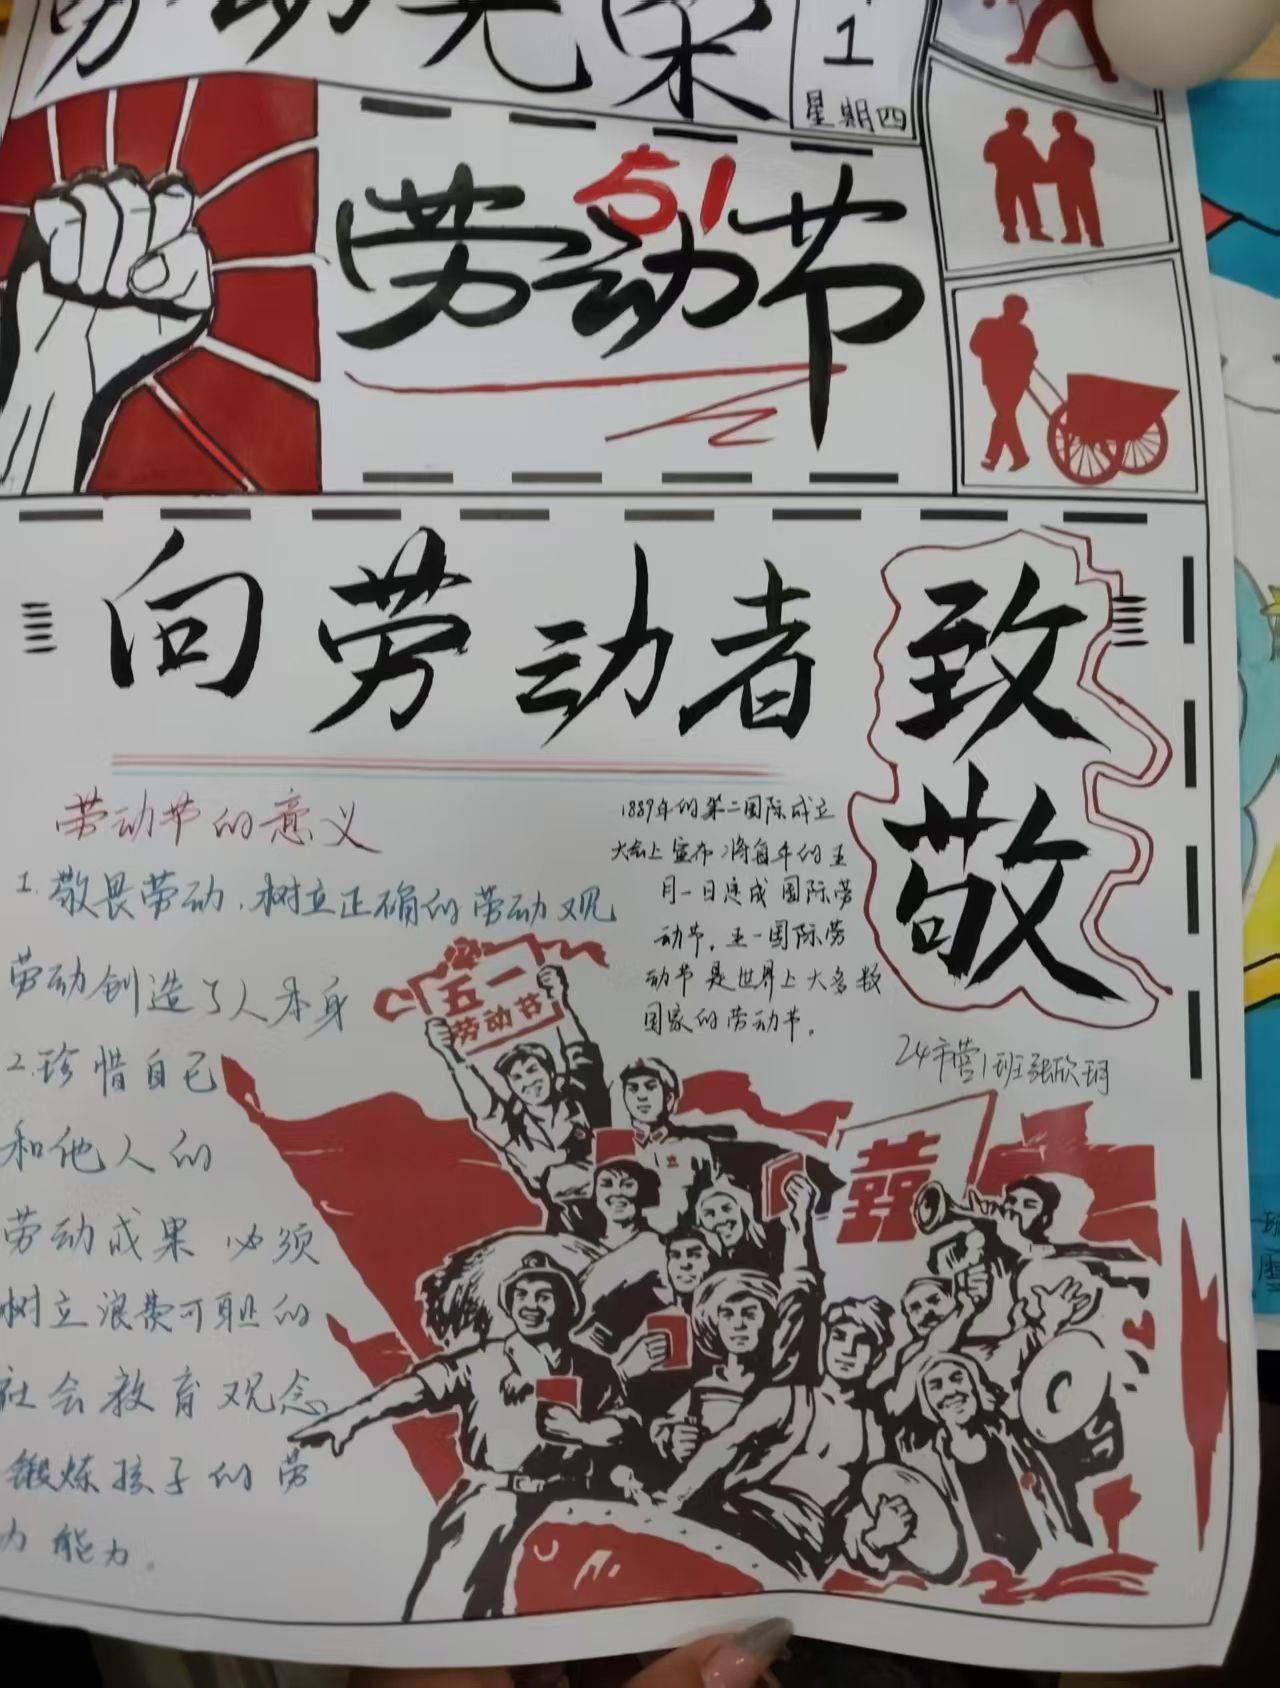 劳动光荣
1
星期四
51
劳动节
向劳动者
致
敬
劳动节的意义
1.敬畏劳动.树立正确的劳动观
劳动创造了人本身
2.珍惜自己
和他人的
劳动成果 必须
树立浪费可耻的
社会教育观念
锻炼孩子的劳
力能力。
1889年的第二国际成立
大会上宣布将每年的五
月一日定成国际劳
动节，五一国际劳
动节是世界上大多数
国家的劳动节。
24市营1班张欣
五一
劳动节
囍